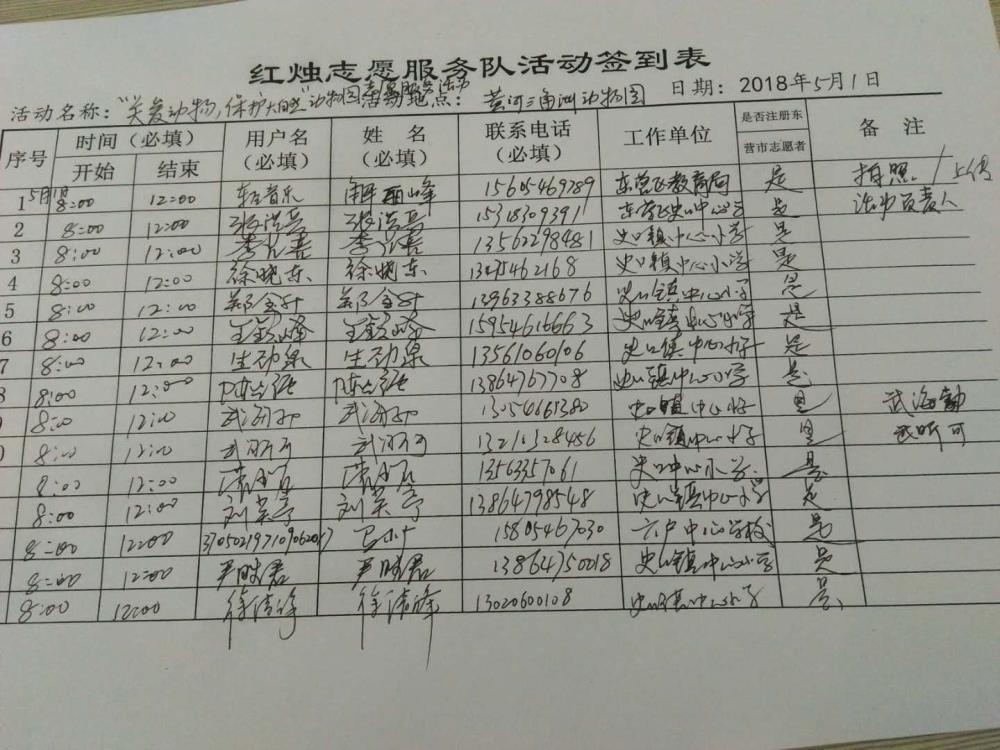 红烛志愿服务队活动签到表
活动名称：“关爱动物，保护大自然”动物园志愿服务活动 活动地点：黄河三角洲动物园 日期：2018年5月1日
序号 时间（必填） 用户名（必填） 姓 名（必填） 联系电话（必填） 工作单位 是否注册东营市志愿者 备 注
开始 结束
1 5月1日 8:00 12:00 15605469789 东营区教育局 是 拍照/上传
2 8:00 12:00 张洪亮 张洪亮 15318309391 东营区史口中心小学 是 活动负责人
3 8:00 12:00 13562298481 史口镇中心小学 是
4 8:00 12:00 徐晓东 徐晓东 史口镇中心小学 是
5 8:00 12:00 郑金升 郑金升 13963388676 史口镇中心小学 是
6 8:00 12:00 15954616663 史口镇中心小学 是
7 8:00 12:00 生劲泉 生劲泉 13561060106 史口镇中心小学 是
8 8:00 12:00 13864767708 史口镇中心小学 是
8:00 12:00 13054661380 史口镇中心小学 是 武海勃
8:00 12:00 13210328456 史口镇中心小学 是 武昕可
8:00 12:00 1356357061 史口中心小学 是
8:00 12:00 刘 刘 13864798548 史口镇中心小学 是
8:00 12:00 15805467030 六户中心学校 是
8:00 12:00 严晓君 严晓君 13864750018 史口镇中心小学 是
8:00 12:00 徐清峰 徐清峰 13020600108 史口镇中心小学 是